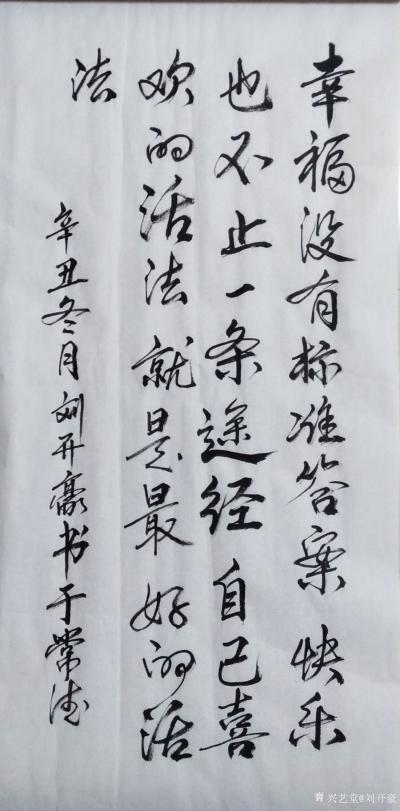 幸福没有标准答案快乐
也不止一条途经自己喜
欢的活法就是最好的活
法
辛丑冬月刘开豪书于常德
兴艺堂@刘开豪